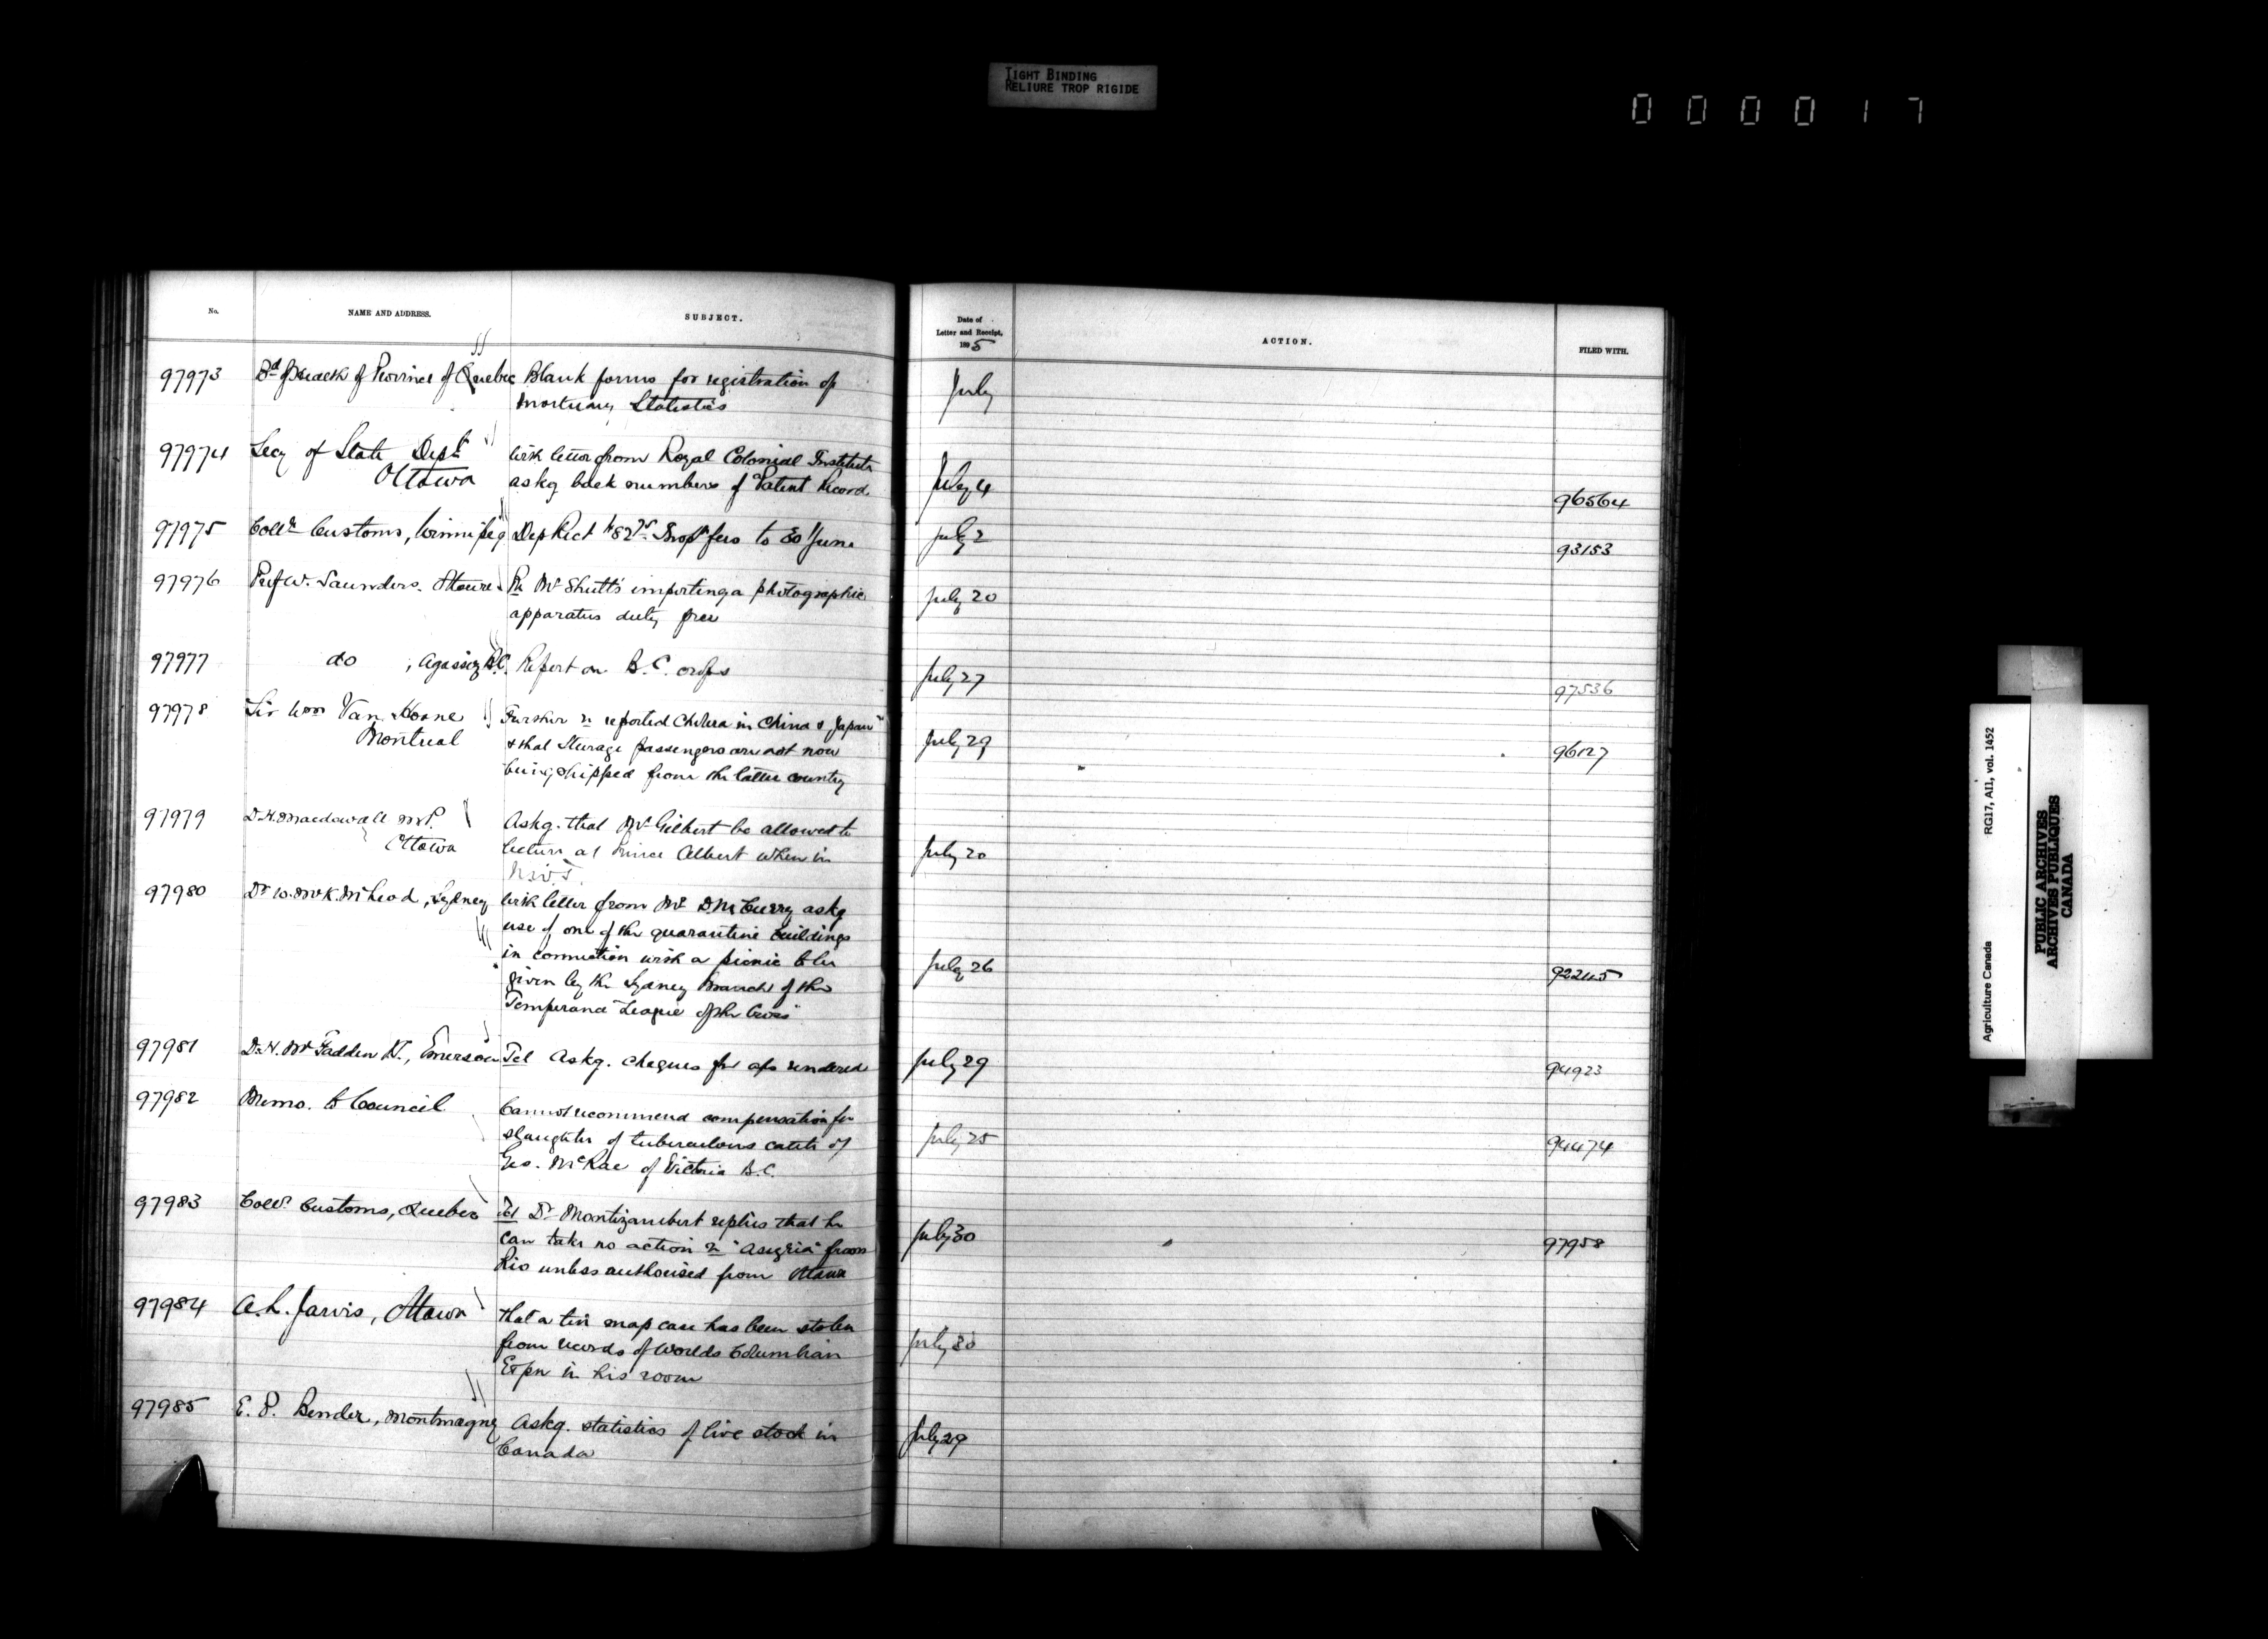 TIGHT BINDING
RELIURE TROP RIGIDE
000017
No. NAME AND ADDRESS. SUBJECT. Date of Letter and Receipt, 1895 ACTION. FILED WITH.
97973 Bd of Health of Province of Quebec Blank forms for registration of July
mortuary Statistics
97974 Secy of State Dept With letter from Royal Colonial Institute July 4
Ottawa askg back numbers of Patent Record 96564
97975 Collr Customs, Winnipeg Dep Rect fees to 30 June July 2 93153
97976 Prof W. Saunders. Ottawa Re Mr Shutt's importing a photographic July 20
apparatus duty free
97977 do , Agassiz B.C. Report on B.C. crops July 27 97536
97978 Sir Wm Van Horne Further re reported Cholera in China & Japan
Montreal & that Steerage passengers are not now July 29 96127
being shipped from the latter country
97979 D.H. Macdowall M.P. Askg. that Mr Gilbert be allowed to
Ottawa lecture at Prince Albert when in July 20
N.W.T.
97980 Dr W. McK. McLeod, Sydney With letter from Mr D. McCurry askg
use of one of the quarantine buildings
in connection with a picnic to be July 26 92245
given by the Sydney Branch of the
Temperance "League of the Cross"
97981 D.H. McFadden V.S., Emerson Tel Askg. cheques for a/cs rendered July 29 94923
97982 Memo. to Council Cannot recommend compensation for
slaughter of tuberculous cattle of July 25 94474
Geo. McRae of Victoria B.C.
97983 Collr. Customs, Quebec Tel Dr Montizambert replies that he
can take no action re from July 30 97958
Rio unless authorised from Ottawa
97984 A.L. Jarvis, Ottawa that a tin map case has been stolen
from records of Worlds Columbian July 30
Expn in his room
97985 E.P. Bender, Montmagny Askg. statistics of live stock in July 29
Canada
Agriculture Canada RG17, AII, vol. 1452
PUBLIC ARCHIVES
ARCHIVES PUBLIQUES
CANADA